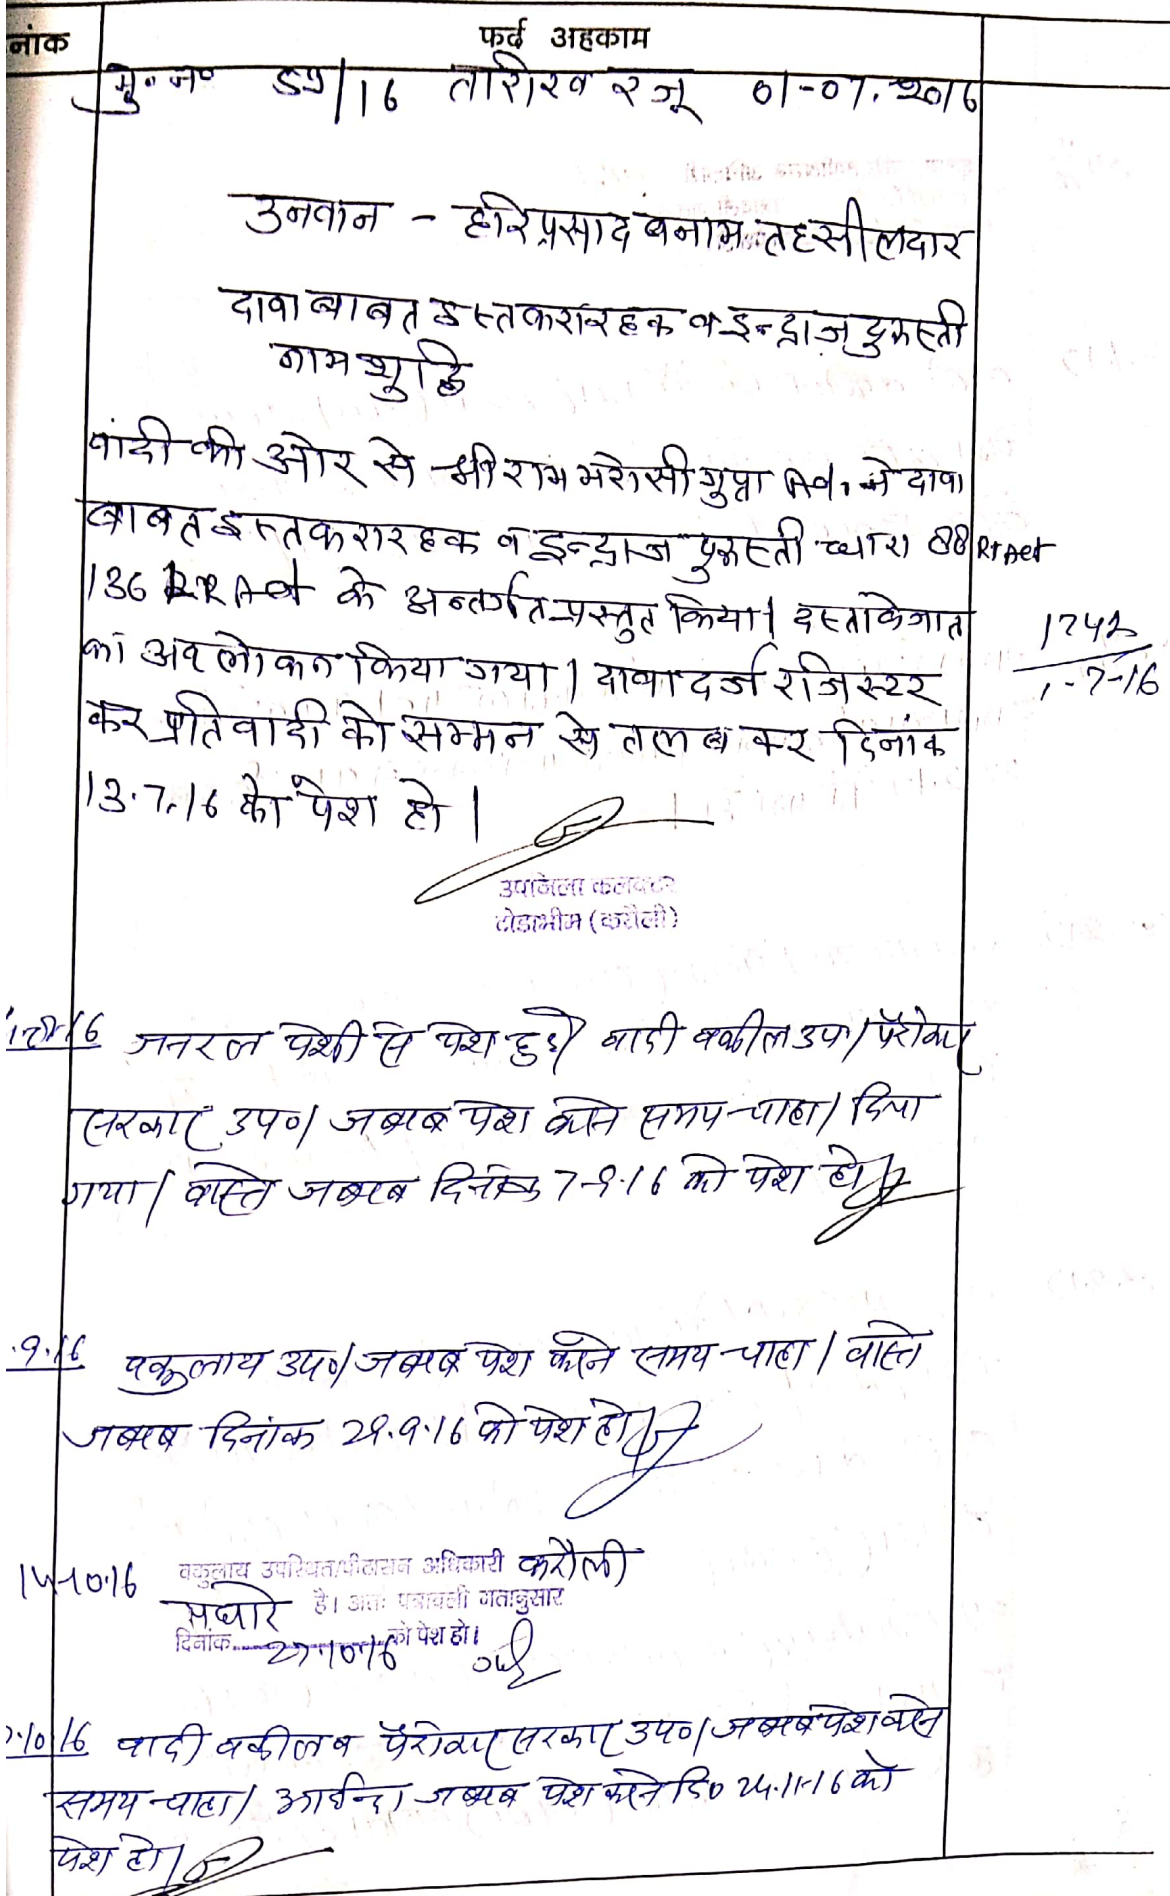 नांक फर्द अहकाम
मु० न० /16 तारिख रजू 01-07.2016
उनवान - हरिप्रसाद बनाम तहसीलदार
दावा बाबत इस्तकरारहक व इन्द्राज दुरुस्ती
नाम शुद्धि
वादी की ओर से श्री राम भरोसी गुप्ता Ad. ने दावा
बाबत इस्तकरारहक व इन्द्राज दुरुस्ती धारा 88 RT Act
136 LR Act के अन्तर्गत प्रस्तुत किया। दस्तावेजात
का अवलोकन किया गया। दावा दर्ज रजिस्टर
कर प्रतिवादी को सम्मन से तलब कर दिनांक
13.7.16 को पेश हो।
-7-16
उपजिला कलक्टर
टोडाभीम (करौली)
16 जनरल पेशी से पेश हुई। वादी वकील उप०। पैरोकार
सरकार उप०। जबाब पेश करने समय चाहा। दिया
गया। वास्ते जबाब दिनांक 7-9-16 को पेश हो।
.9.16 वकुलाय उप०। जबाब पेश करने समय चाहा। वास्ते
जबाब दिनांक 29.9.16 को पेश हो।
14-10-16 वकुलाय उपस्थित/पीठासन अधिकारी करौली
पधारे है। अतः पत्रावली गतानुसार
दिनांक 27.10.16 को पेश हो।
.10.16 वादी वकील व पैरोकार सरकार उप०। जबाब पेश करने
समय चाहा। आईन्दा जबाब पेश करने दि० 24.11.16 को
पेश हो।